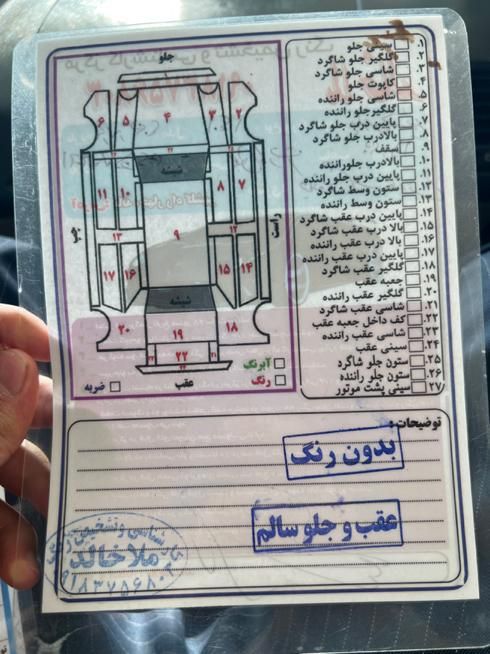 جلو
۱. سینی جلو
۲. گلگیر جلو شاگرد
۳. شاسی جلو شاگرد
۴. کاپوت جلو
۵. شاسی جلو راننده
۶. گلگیرجلو راننده
۷. پایین درب جلو شاگرد
۸. بالادرب جلو شاگرد
۹. سقف
۱۰. بالادرب جلوراننده
۱۱. پایین درب جلو راننده
۱۲. ستون وسط شاگرد
۱۳. ستون وسط راننده
۱۴. پایین درب عقب شاگرد
۱۵. بالا درب عقب شاگرد
۱۶. بالا درب عقب راننده
۱۷. پایین درب عقب راننده
۱۸. گلگیر عقب شاگرد
۱۹. جعبه عقب
۲۰. گلگیر عقب راننده
۲۱. شاسی عقب شاگرد
۲۲. کف داخل جعبه عقب
۲۳. شاسی عقب راننده
۲۴. سینی عقب
۲۵. ستون جلو شاگرد
۲۶. ستون جلو راننده
۲۷. سینی پشت موتور
۲ ۳ ۴ ۵ ۶
شیشه
۷ ۸ ۱۰ ۱۱
راست
۹
چپ
۱۲ ۱۳
۱۴ ۱۵ ۱۶ ۱۷
شیشه
۱۸ ۱۹ ۲۰
۲۲
آبرنگ
رنگ
عقب
ضربه
توضیحات:
بدون رنگ
عقب و جلو سالم
ملاخالد